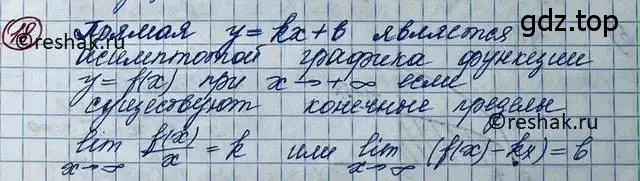 gdz.top
18 Прямая y = kx + в является
асимптотой графика функции
y = f(x) при x → + ∞ если
существуют конечные пределы
lim x→∞ f(x)/x = k или lim x→∞ (f(x) - kx) = в